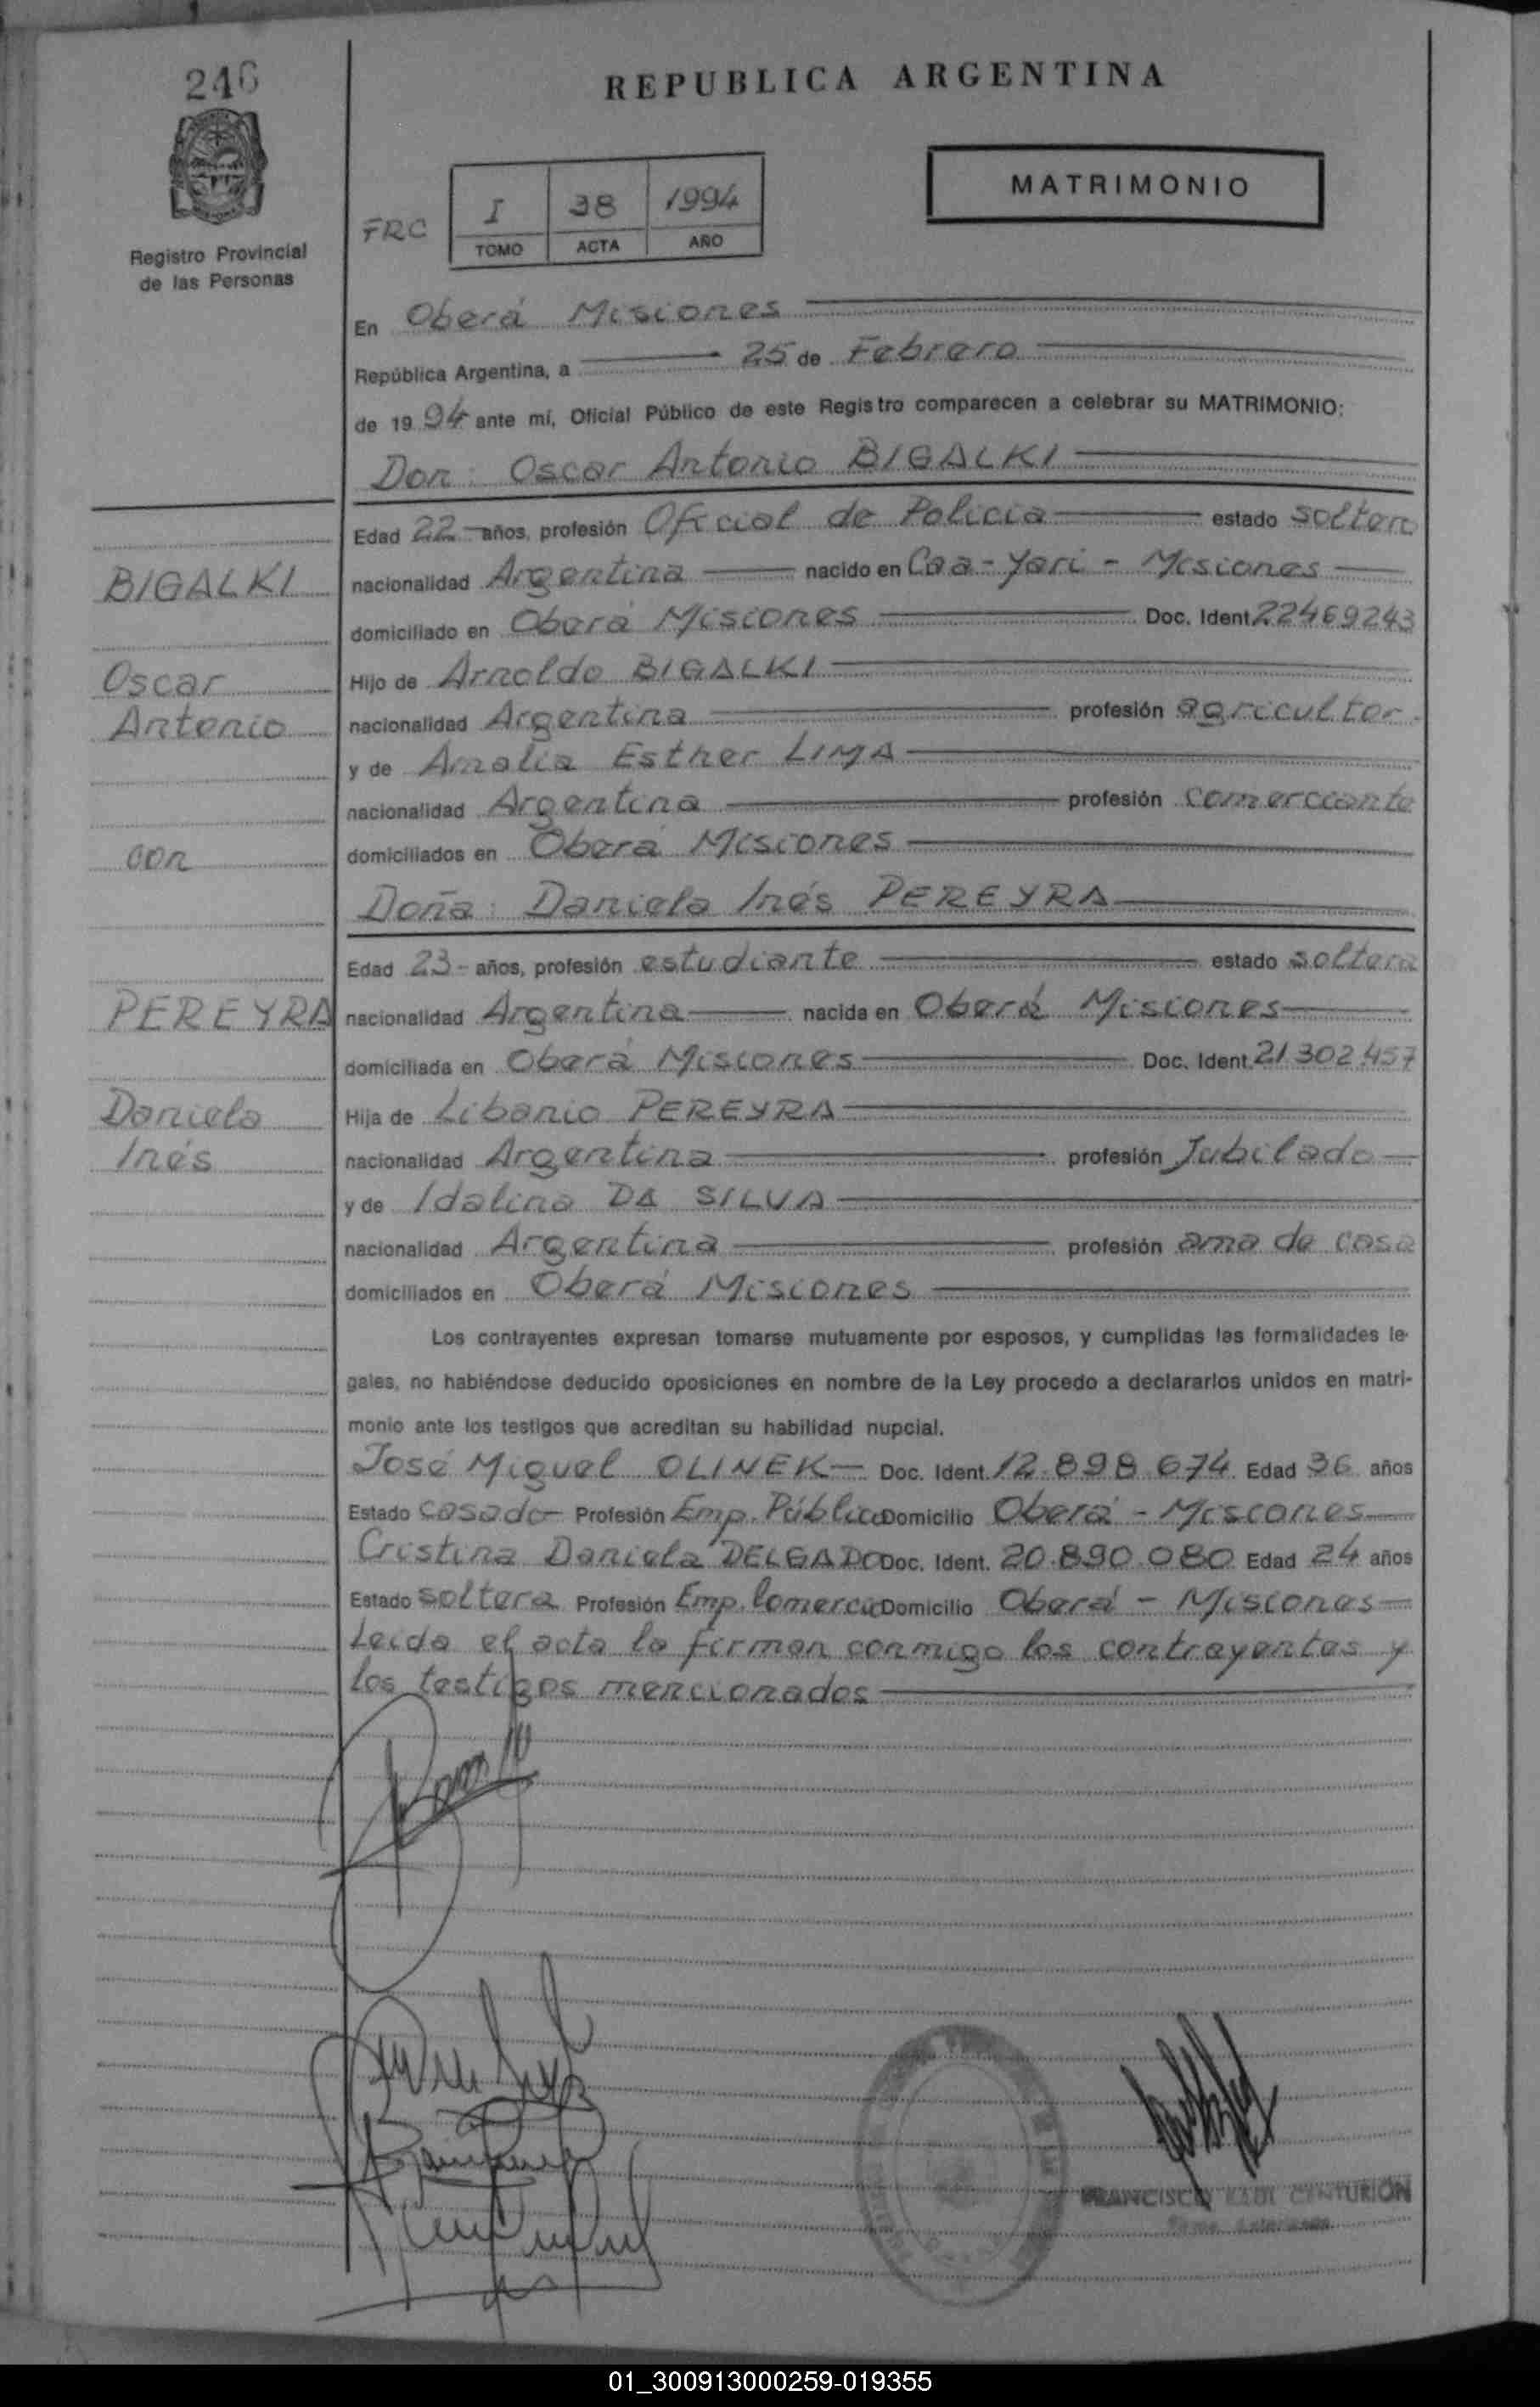 246
REPUBLICA ARGENTINA
Registro Provincial
de las Personas
MATRIMONIO
FRC
I 38 1994
TOMO ACTA AÑO
En Oberá Misiones
República Argentina, a 25 de Febrero
de 1994 ante mí, Oficial Público de este Registro comparecen a celebrar su MATRIMONIO:
Don: Oscar Antonio BIGALKI
Edad 22 años, profesión Oficial de Policía estado soltero
BIGALKI
nacionalidad Argentina nacido en Caa-Yarí - Misiones
domiciliado en Oberá Misiones Doc. Ident. 22469243
Oscar
Hijo de Arnoldo BIGALKI
Antonio
nacionalidad Argentina profesión agricultor
y de Amalia Esther LIMA
nacionalidad Argentina profesión comerciante
con
domiciliados en Oberá Misiones
Doña: Daniela Inés PEREYRA
Edad 23 años, profesión estudiante estado soltera
PEREYRA
nacionalidad Argentina nacida en Oberá Misiones
domiciliada en Oberá Misiones Doc. Ident. 21302457
Daniela
Hija de Libanio PEREYRA
Inés
nacionalidad Argentina profesión Jubilado
y de Idalina DA SILVA
nacionalidad Argentina profesión ama de casa
domiciliados en Oberá Misiones
Los contrayentes expresan tomarse mutuamente por esposos, y cumplidas las formalidades le-
gales, no habiéndose deducido oposiciones en nombre de la Ley procedo a declararlos unidos en matri-
monio ante los testigos que acreditan su habilidad nupcial.
José Miguel OLINEK Doc. Ident. 12.898.674 Edad 36 años
Estado casado Profesión Emp. Público Domicilio Oberá - Misiones
Cristina Daniela DELGADO Doc. Ident. 20.890.080 Edad 24 años
Estado soltera Profesión Emp. Comercio Domicilio Oberá - Misiones
Leída el acta la firman conmigo los contrayentes y
los testigos mencionados
FRANCISCO RAUL CENTURIÓN
01_300913000259-019355